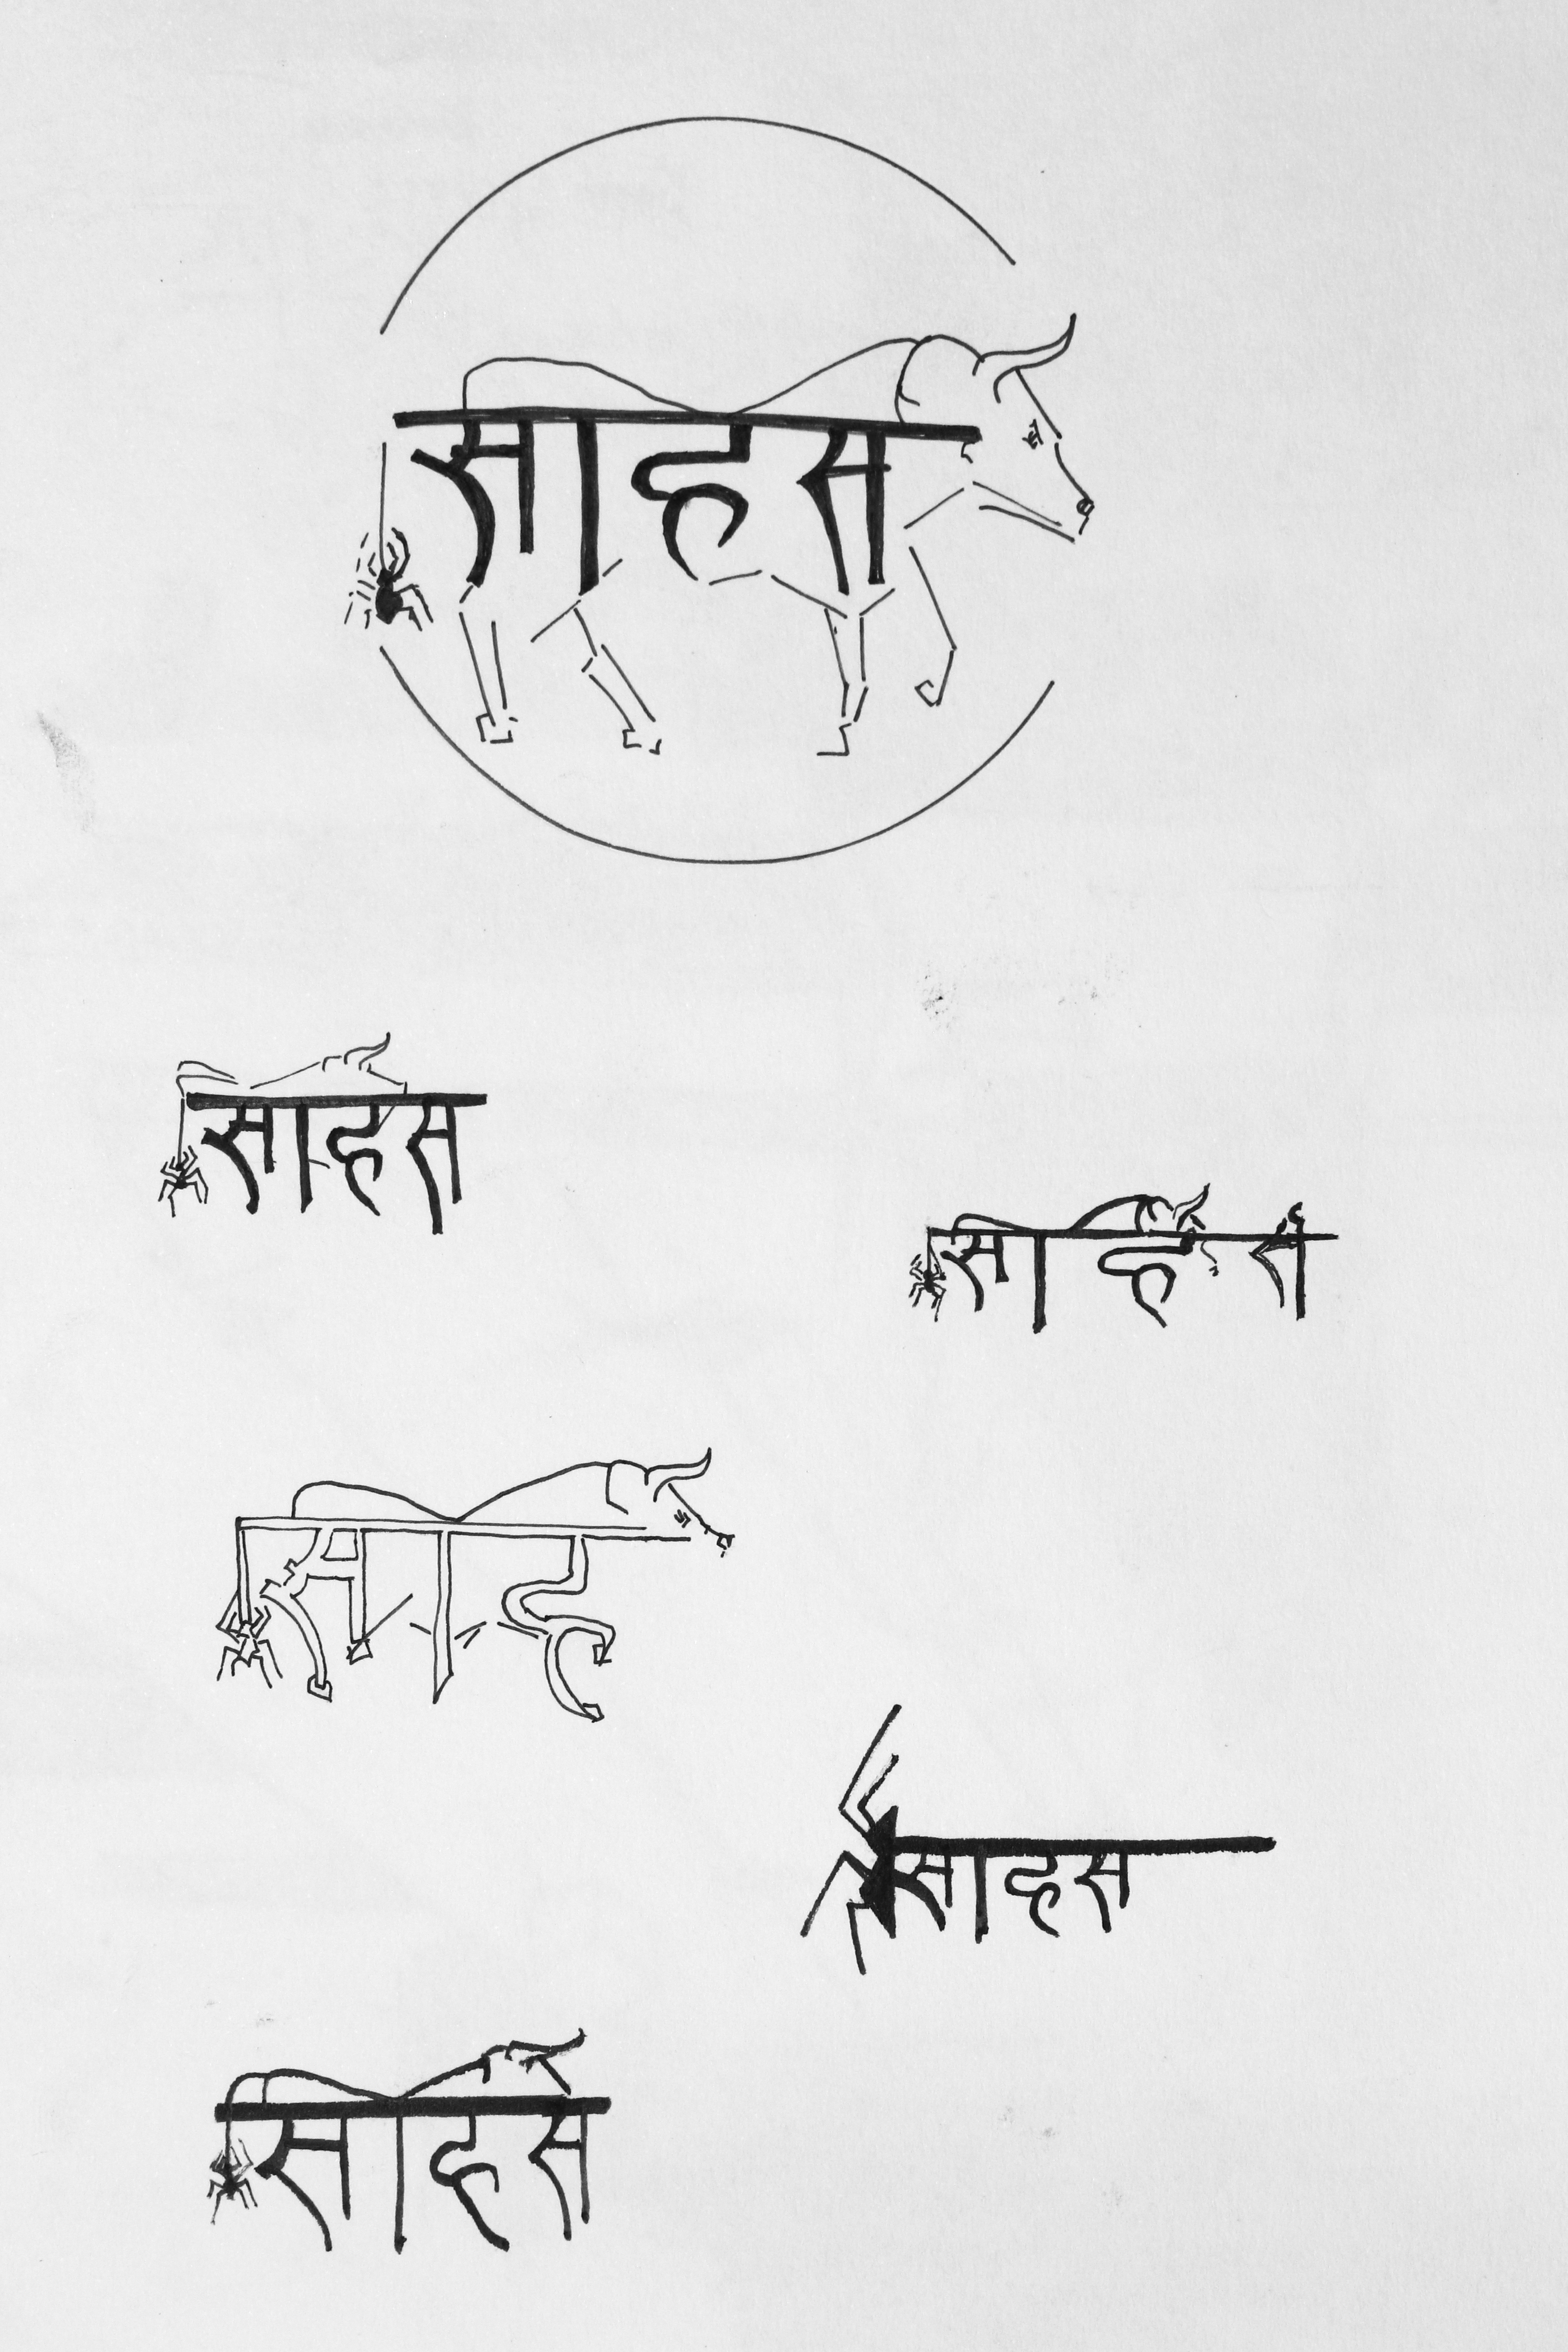 साहस
साहस
साहस
साह
साहस
साहस